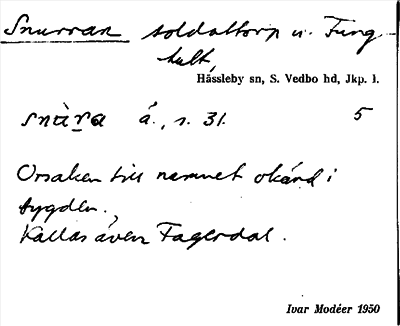 Snurran soldattorp u. Fung-
hult,
Hässleby sn, S. Vedbo hd, Jkp. l.
snùra å., s. 31. 5
Orsaken till namnet okänd i
bygden.
Kallas även Fagerdal.
Ivar Modéer 1950